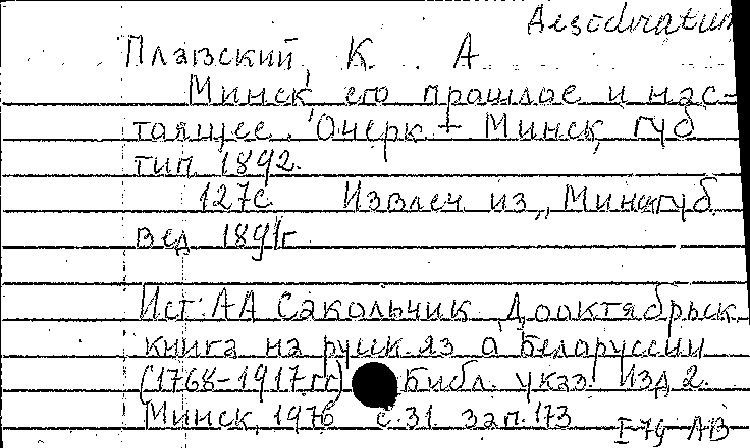 Desideratum
Плавский, К. А.
Минск, его прошлое и нас-
тоящее. Очерк + Минск, губ
тип 1892.
127с Извлеч из „Минскгуб
вед 1891г.
Ист: АА Сакольчик Дооктябрьск
книга на руск яз о Белоруссии
(1768-1917гг) Библ. указ. Изд 2.
Минск, 1976 с.31 зап.173
I-79 АВ